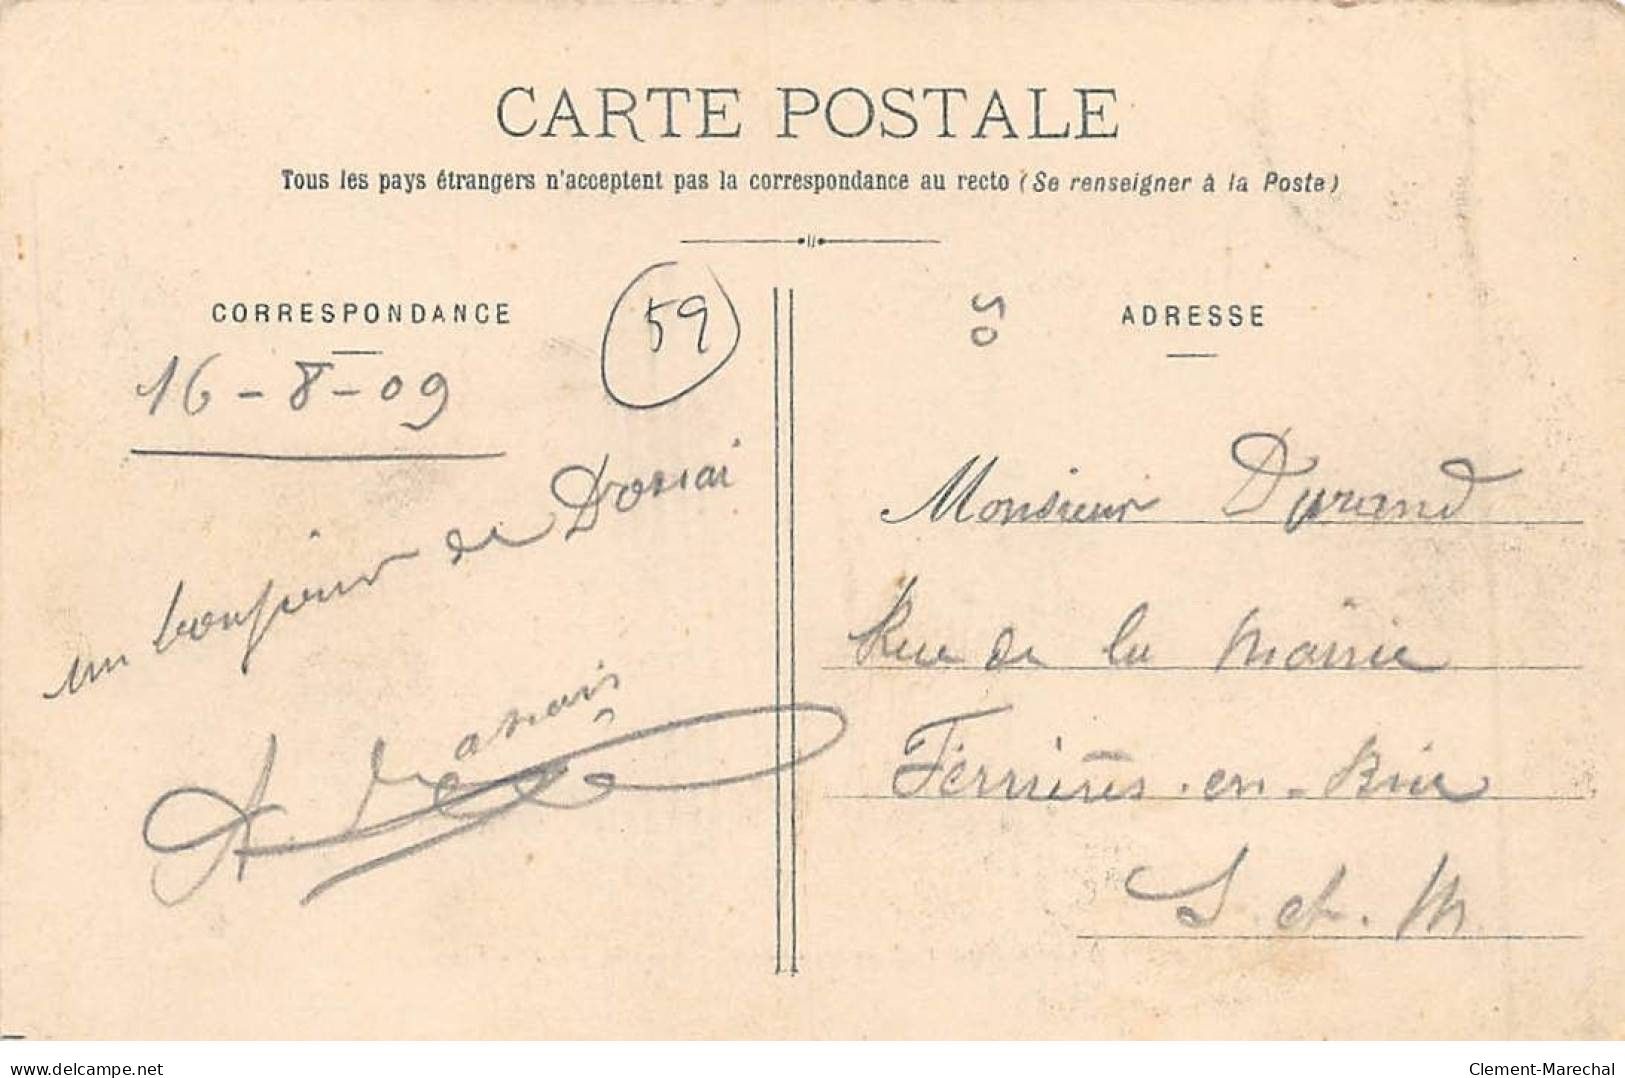 CARTE POSTALE
Tous les pays étrangers n'acceptent pas la correspondance au recto (Se renseigner à la Poste)
CORRESPONDANCE
59
50
ADRESSE
16-8-09
un bonjour de Douai
A.
Monsieur Durand
Rue de la Mairie
Ferrières-en-Brie
S. et. M
www.delcampe.net
Clement-Marechal